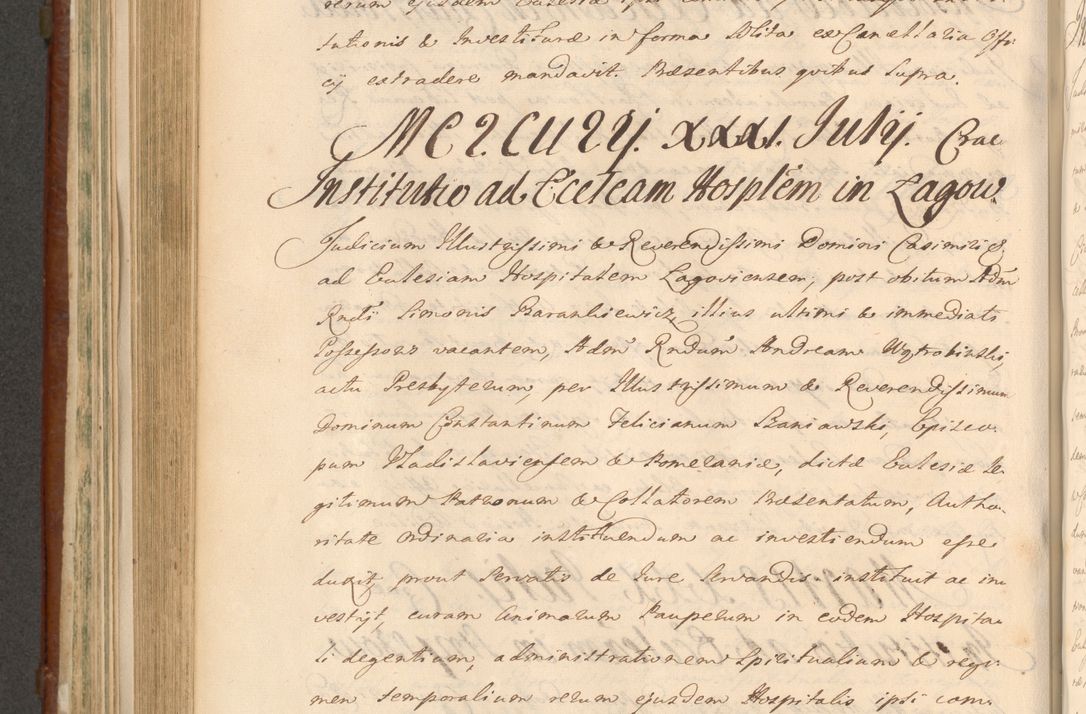 tutionis & Investituræ in forma solita ex Cancellaria Offi
cij extradere mandavit. Præsentibus quibus supra.
Mercurij. XXXI. Julij. Crac
Institutio ad Eccleam Hosplem in Lagow.
Judicium Illustrissimi & Reverendissimi Domini Casimiri &.
ad Eulesiam Hospitalem Lagoviensem, post obitum Adm
Rndi Simonis Barankiewicz illius ultimi & immediati
Possessoris vacantem, Adm Rndum Andream Wytrobinski,
actu Presbyterum, per Illustrissimum & Reverendissimum
Dominum Constantinum Felicianum Szaniawski, Episco
pum Vladislaviensem & Pomeraniæ, dictæ Eulesiæ le
gitimum Patronum & Collatorem Præsentatum, Autho
ritate ordinaria instituendum ac investiendum esse
duxit, prout servatis de Jure servandis instituit ac in
vestijt, curam animarum Pauperum in eodem Hospita
li degentium, administrationem Spiritualium & regi
men temporalium rerum ejusdem Hospitalis ipsi com